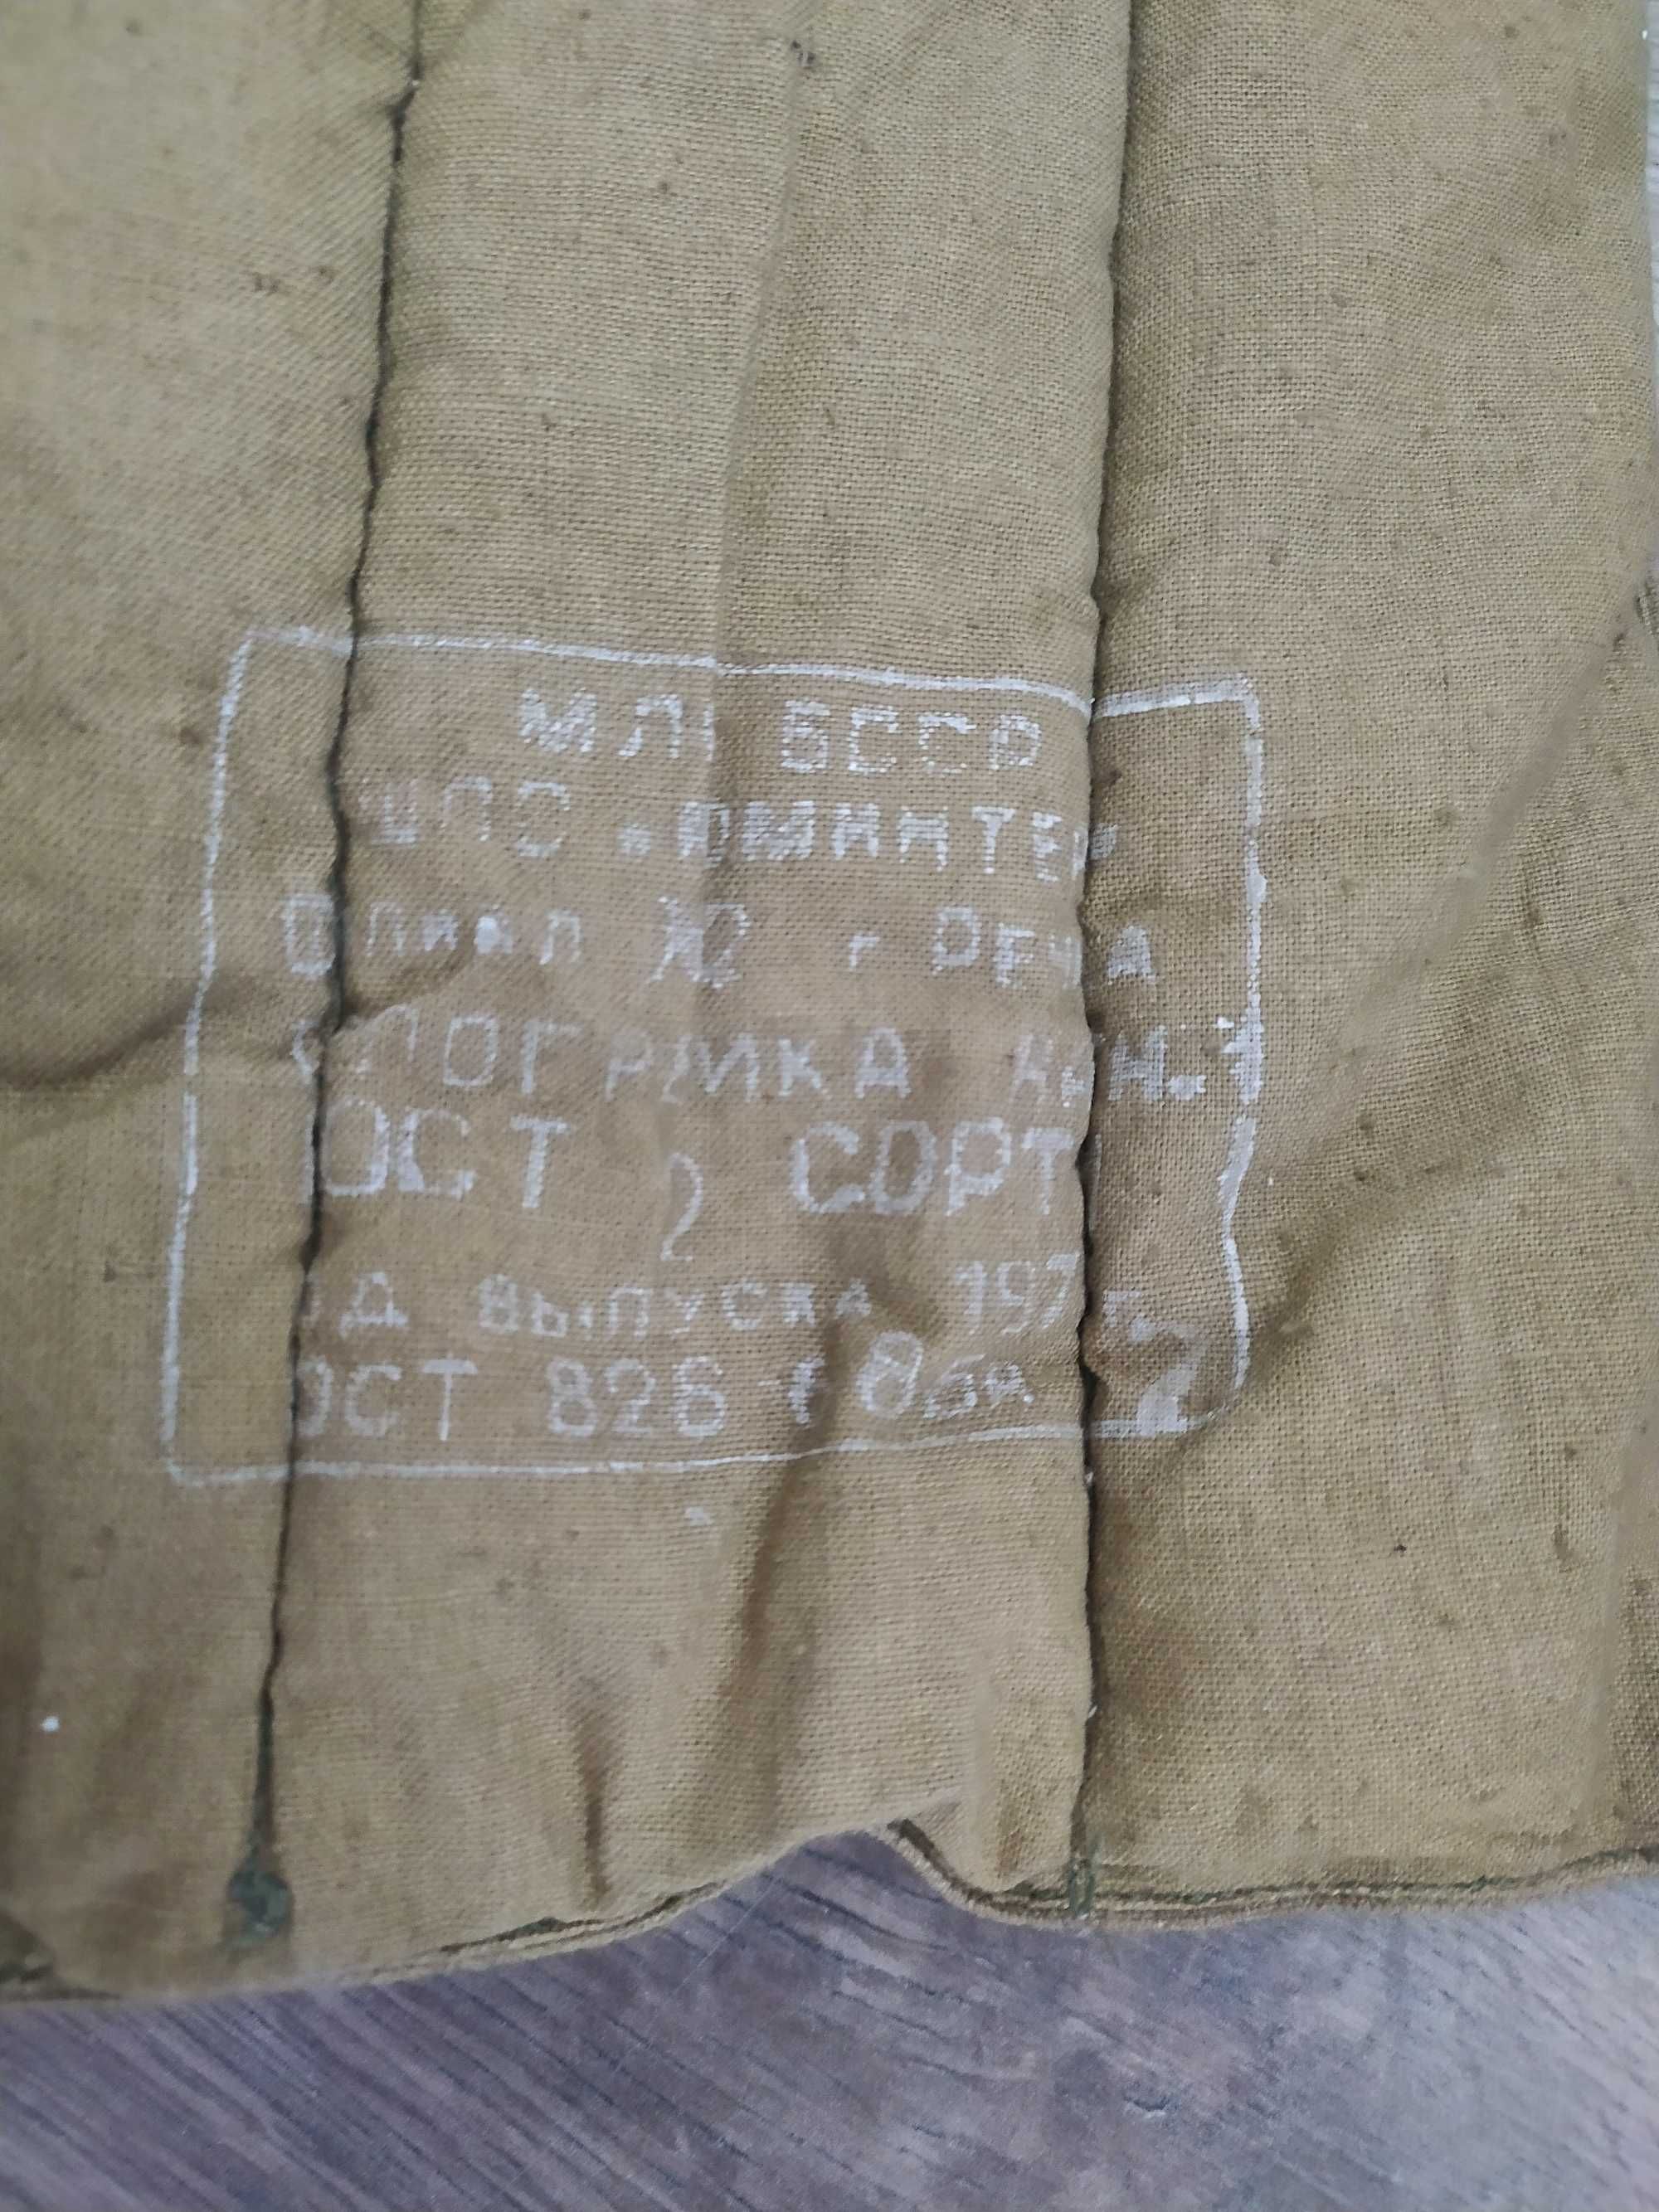 МЛП БССР
ШПО "КОМИНТЕРН"
Филиал №2 г. Речица
ТЕЛОГРЕЙКА
РОСТ 2 СОРТ
ГОД ВЫПУСКА 197 г.
ГОСТ 826